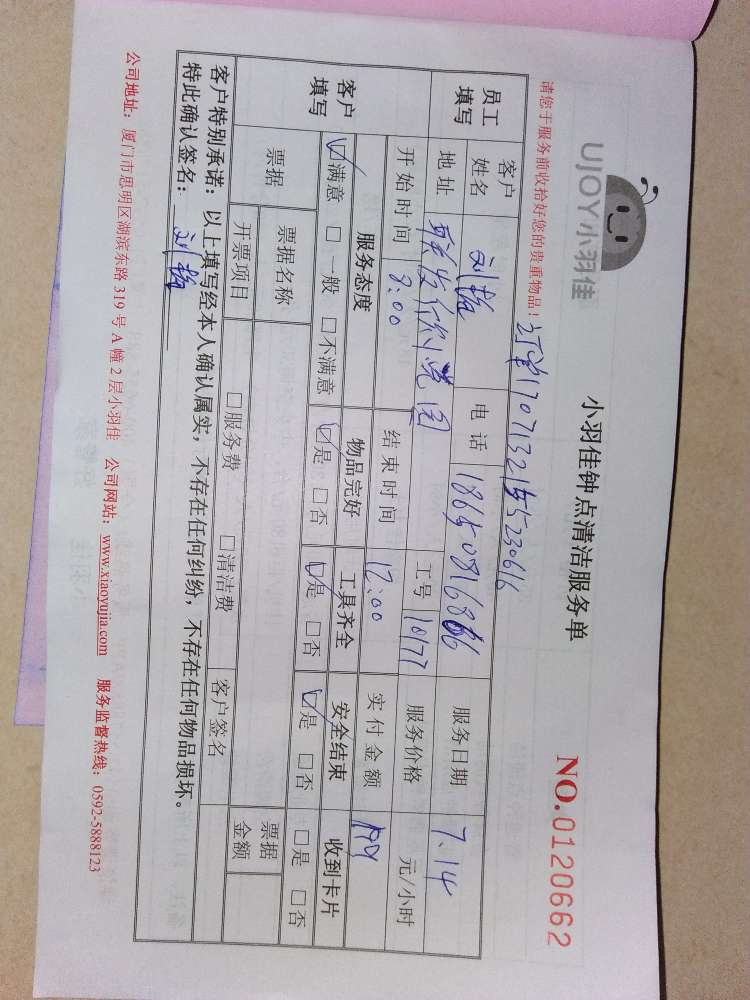 UJOY小羽佳
小羽佳钟点清洁服务单
NO.0120662
请您于服务前收拾好您的贵重物品!
员工填写 客户姓名 刘 电话 服务日期 7.14
地址 工号 10177 服务价格 元/小时
开始时间 8:00 结束时间 12:00 实付金额
客户填写 服务态度 物品完好 工具齐全 安全结束 收到卡片
☑满意 □一般 □不满意 ☑是 □否 ☑是 □否 ☑是 □否 □是 □否
票据 票据名称 票据金额
开票项目 □服务费 □清洁费 客户签名
客户特别承诺:以上填写经本人确认属实,不存在任何纠纷,不存在任何物品损坏。
特此确认签名: 刘
公司地址:厦门市思明区湖滨东路 319 号 A 幢 2 层小羽佳 公司网站:www.xiaoyujia.com 服务监督热线:0592-5888123